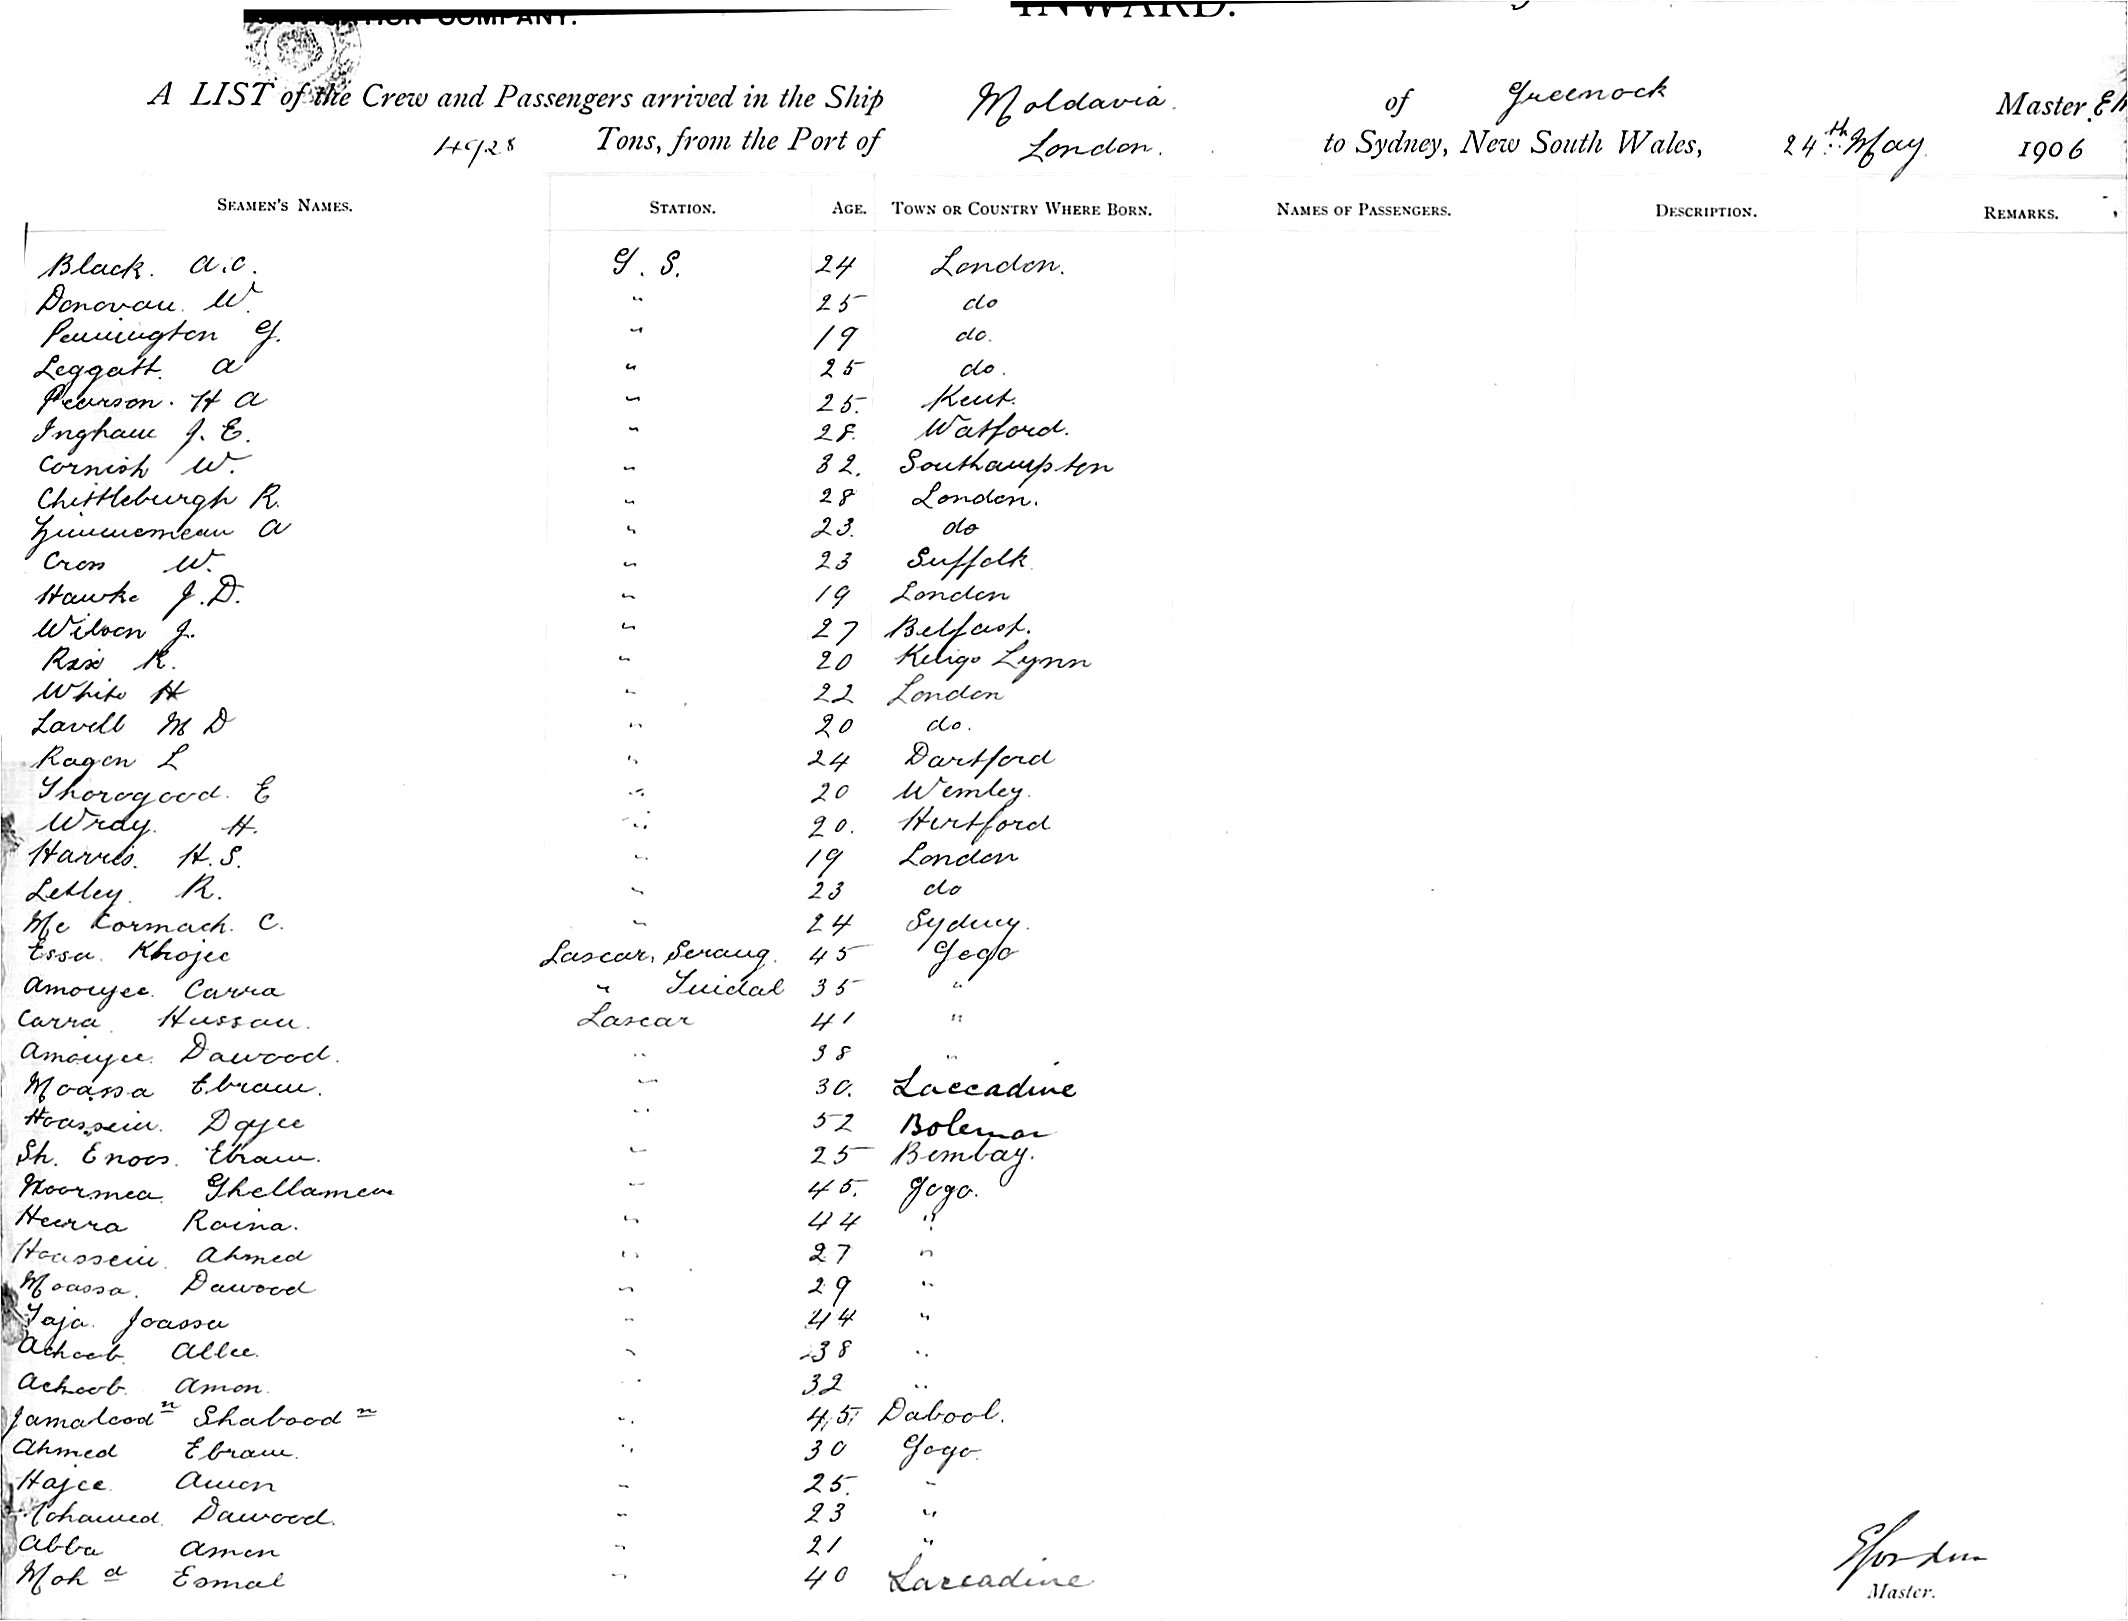 COMPANY. INWARD.
A LIST of the Crew and Passengers arrived in the Ship Moldavia. of Greenock Master
4928 Tons, from the Port of London. to Sydney, New South Wales, 24th May 1906
SEAMEN'S NAMES. STATION. AGE. TOWN OR COUNTRY WHERE BORN. NAMES OF PASSENGERS. DESCRIPTION. REMARKS.
Black. A.C. G.S. 24 London.
Donovan. W. " 25 do
Pennington G. " 19 do.
Leggatt. A " 25 do.
Pearson. H A " 25. Kent.
Ingham J. E. " 28. Watford.
Cornish W. " 32. Southampton
Chittleburgh R. " 28 London.
Zimmemean A " 23. do
Cross W. " 23 Suffolk
Hawke J.D. " 19 London
Wilson J. " 27 Belfast.
Rix R. " 20 Kings Lynn
White H " 22 London
Lavell M D " 20 do.
Ragen L " 24 Dartford
Thorogood. E " 20 Wemley.
Wray. H. " 20. Hertford
Harris. H.S. " 19 London
Letley. R. " 23 do
Mc Cormack. C. " 24 Sydney.
Essa. Khojee Lascar, Serang. 45 Gogo
Amoujee. Carra " Tuidal 35 "
Carra Hussan. Lascar 41 "
Amoujee. Dawood. " 38 "
Moassa Ebram. " 30. Laccadine
Hoassein. Dajee " 52
Sh. Enoos. Ebram. " 25 Bombay.
Noormea Ghellamea " 45. Gogo.
Heerra Raina. " 44 "
Hoassein. Ahmed " 27 "
Moassa. Dawood " 29 "
Taja. Joassa " 44 "
Achoob. Allee. " 38 "
Achoob. Amon. " 32 "
Jamalood n Shabood n " 45. Dabool.
Ahmed Ebram. " 30 Gogo.
Hajee. Amon " 25. "
Mohamed. Dawood. " 23 "
Abba Amon " 21 "
Moh d Esmal " 40 Laccadine
Gordon
Master.